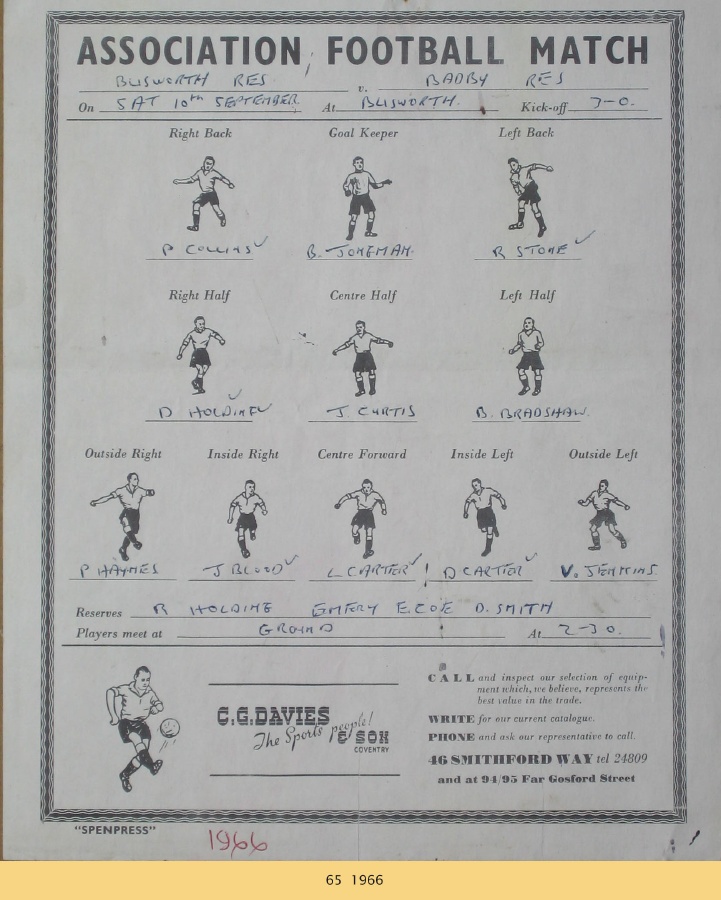 ASSOCIATION FOOTBALL MATCH
BLISWORTH RES v. BADBY RES
On SAT 10th SEPTEMBER At BLISWORTH. Kick-off 3-0.
Right Back Goal Keeper Left Back
P COLLINS ✓ B. JONEMAN. R STONE ✓
Right Half Centre Half Left Half
D HOLDING ✓ J. CURTIS B. BRADSHAW.
Outside Right Inside Right Centre Forward Inside Left Outside Left
P HAYNES J BLOOD ✓ L CARTER ✓ D CARTER ✓ V. JENKINS
Reserves R HOLDING EMERY E. COE D. SMITH
Players meet at GROUND At 2-30.
CALL and inspect our selection of equip-
ment which, we believe, represents the
best value in the trade.
C.G.DAVIES
& SON
The Sports people!
COVENTRY
WRITE for our current catalogue.
PHONE and ask our representative to call.
46 SMITHFORD WAY tel 24809
and at 94/95 Far Gosford Street
"SPENPRESS"
1966
65 1966